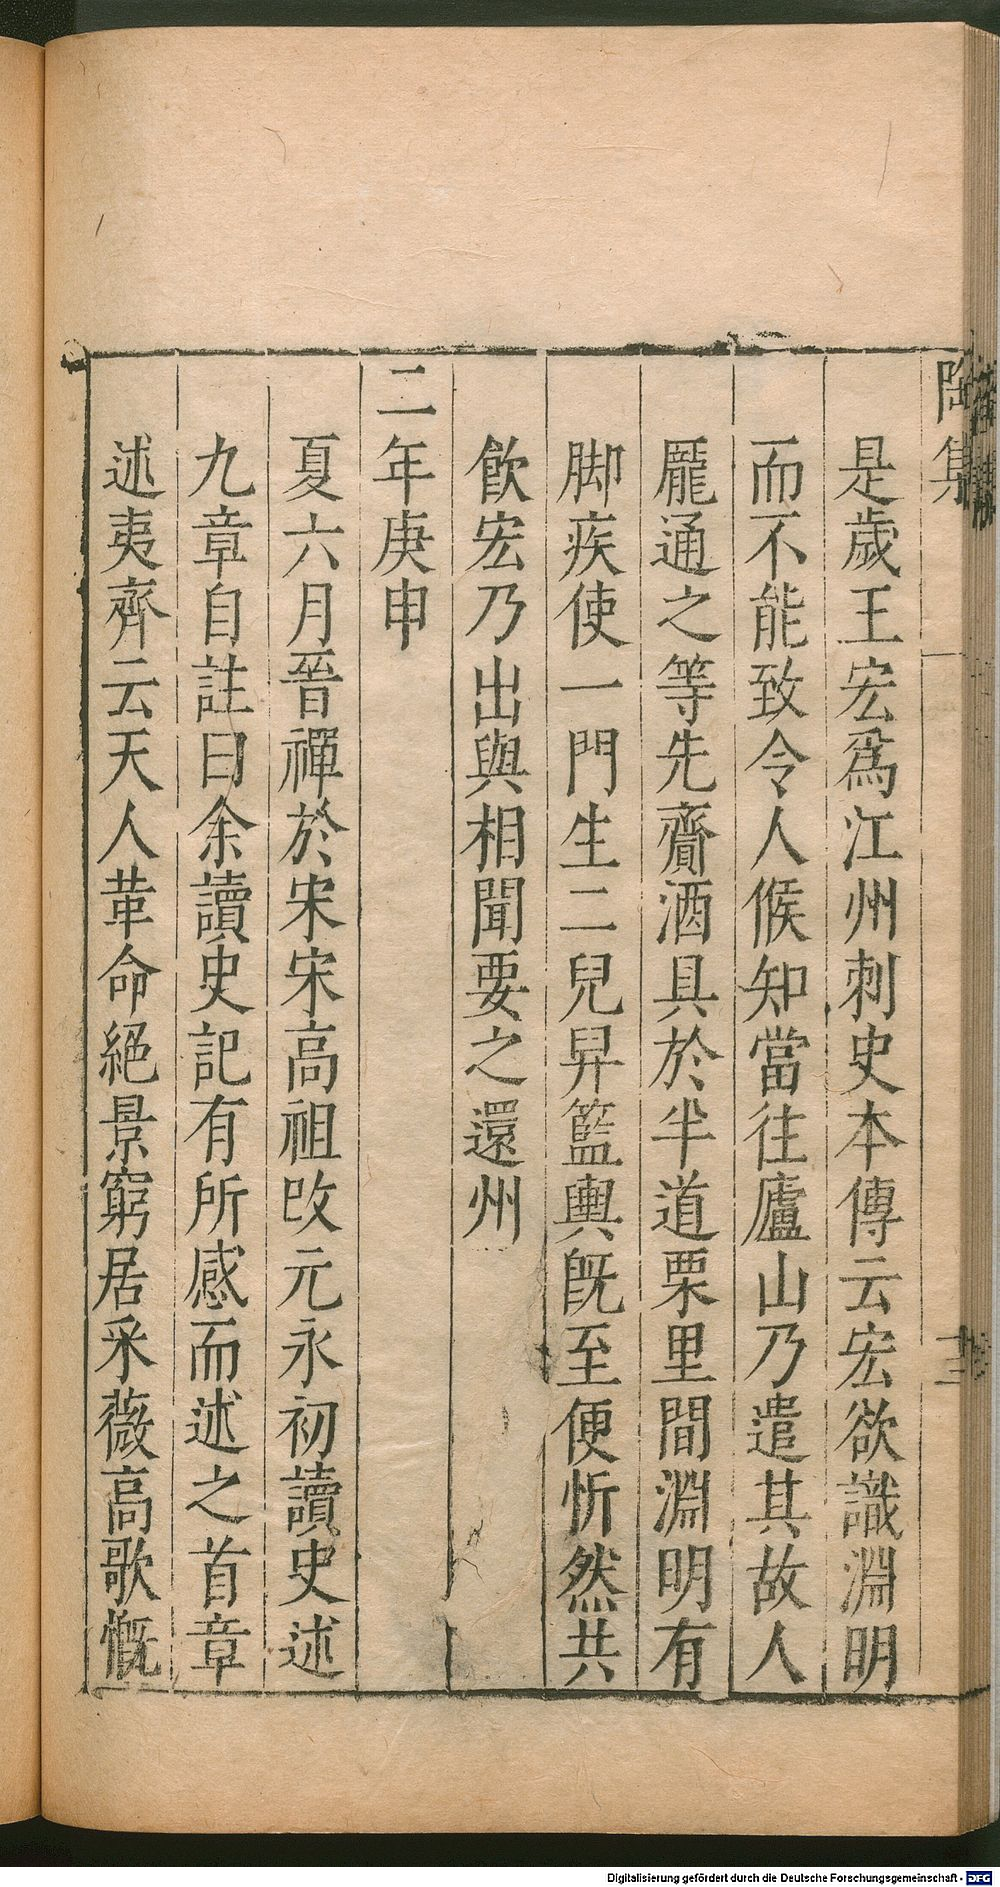 陶集
是歲王宏爲江州刺史本傳云宏欲識淵明
而不能致令人候知當往廬山乃遣其故人
龎通之等先齎酒具於半道栗里間淵明有
脚疾使一門生二兒舁籃輿旣至便忻然共
飲宏乃出與相聞要之還州
二年庚申
夏六月晉禪於宋宋高祖改元永初讀史述
九章自註曰余讀史記有所感而述之首章
述夷齊云天人革命絕景窮居采薇高歌慨
Digitalisierung gefördert durch die Deutsche Forschungsgemeinschaft - DFG